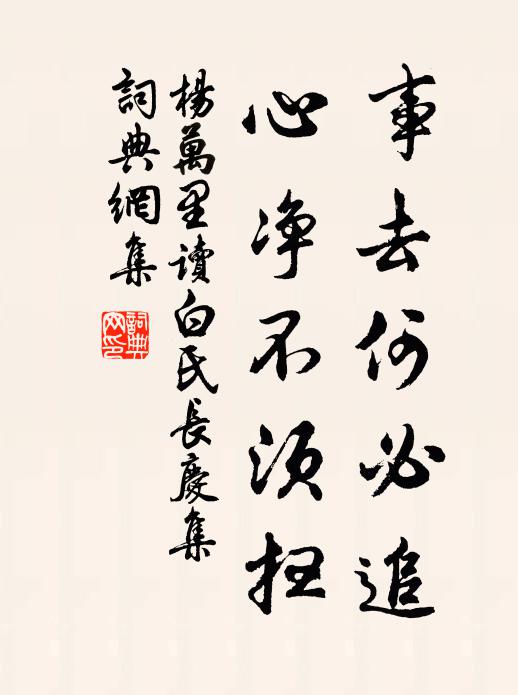 事去何必追
心净不須扫
楊萬里讀白氏長慶集
詞典網集
詞典
网印